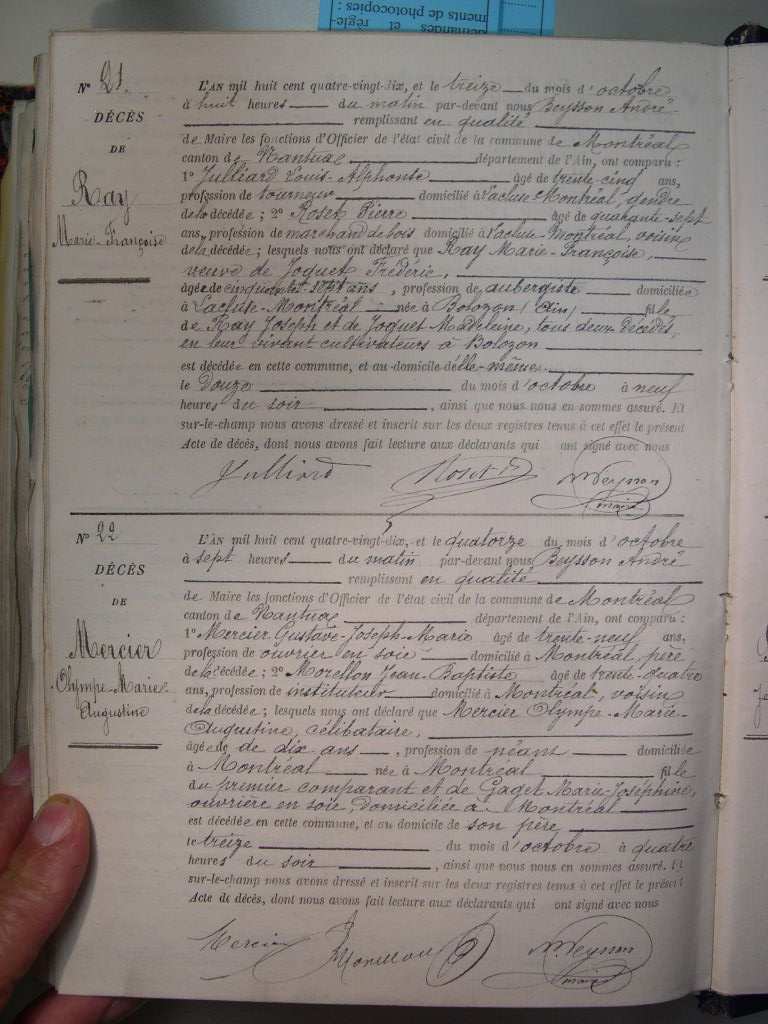 demandes et règle-
ments de photocopies :
N° 21.
DÉCÈS
DE
Ray
Marie-Françoise
L'AN mil huit cent quatre-vingt-dix, et le treize du mois d'octobre
à huit heures du matin par-devant nous Beysson André
remplissant en qualité
de Maire les fonctions d'Officier de l'état civil de la commune de Montréal
canton de Nantua département de l'Ain, ont comparu :
1° Julliard Louis Alphonse âgé de trente cinq ans,
profession de tourneur domicilié à Lacluse-Montréal, gendre
de la décédée ; 2° Roset Pierre âgé de quarante-sept
ans, profession de marchand de bois domicilié à Lacluse-Montréal, voisin
de la décédée ; lesquels nous ont déclaré que Ray Marie-Françoise,
veuve de Joquet Frédéric,
âgée de cinquante-sept ans, profession de aubergiste domiciliée
à Lacluse-Montréal née à Bolozon (Ain) fille
de Ray Joseph et de Joquet Madeleine, tous deux décédés,
en leur vivant cultivateurs à Bolozon
est décédée en cette commune, et au domicile d'elle-même
le douze du mois d'octobre à neuf
heures du soir, ainsi que nous nous en sommes assuré. Et
sur-le-champ nous avons dressé et inscrit sur les deux registres tenus à cet effet le présent
Acte de décès, dont nous avons fait lecture aux déclarants qui ont signé avec nous
Julliard Roset P
maire
N° 22
DÉCÈS
DE
Mercier
Olympe-Marie
Augustine
L'AN mil huit cent quatre-vingt-dix, et le quatorze du mois d'octobre
à sept heures du matin par-devant nous Beysson André
remplissant en qualité
de Maire les fonctions d'Officier de l'état civil de la commune de Montréal
canton de Nantua département de l'Ain, ont comparu :
1° Mercier Gustave-Joseph-Marie âgé de trente-neuf ans,
profession de ouvrier en soie domicilié à Montréal, père
de la décédée ; 2° Morellon Jean-Baptiste âgé de trente-quatre
ans, profession de instituteur domicilié à Montréal, voisin
de la décédée ; lesquels nous ont déclaré que Mercier Olympe-Marie-
Augustine, célibataire,
âgée de dix ans, profession de néant domiciliée
à Montréal née à Montréal fille
du premier comparant et de Gaget Marie-Joséphine,
ouvrière en soie domiciliée à Montréal
est décédée en cette commune, et au domicile de son père,
le treize du mois d'octobre à quatre
heures du soir, ainsi que nous nous en sommes assuré. Et
sur-le-champ nous avons dressé et inscrit sur les deux registres tenus à cet effet le présent
Acte de décès, dont nous avons fait lecture aux déclarants qui ont signé avec nous
Mercier Morellon
maire